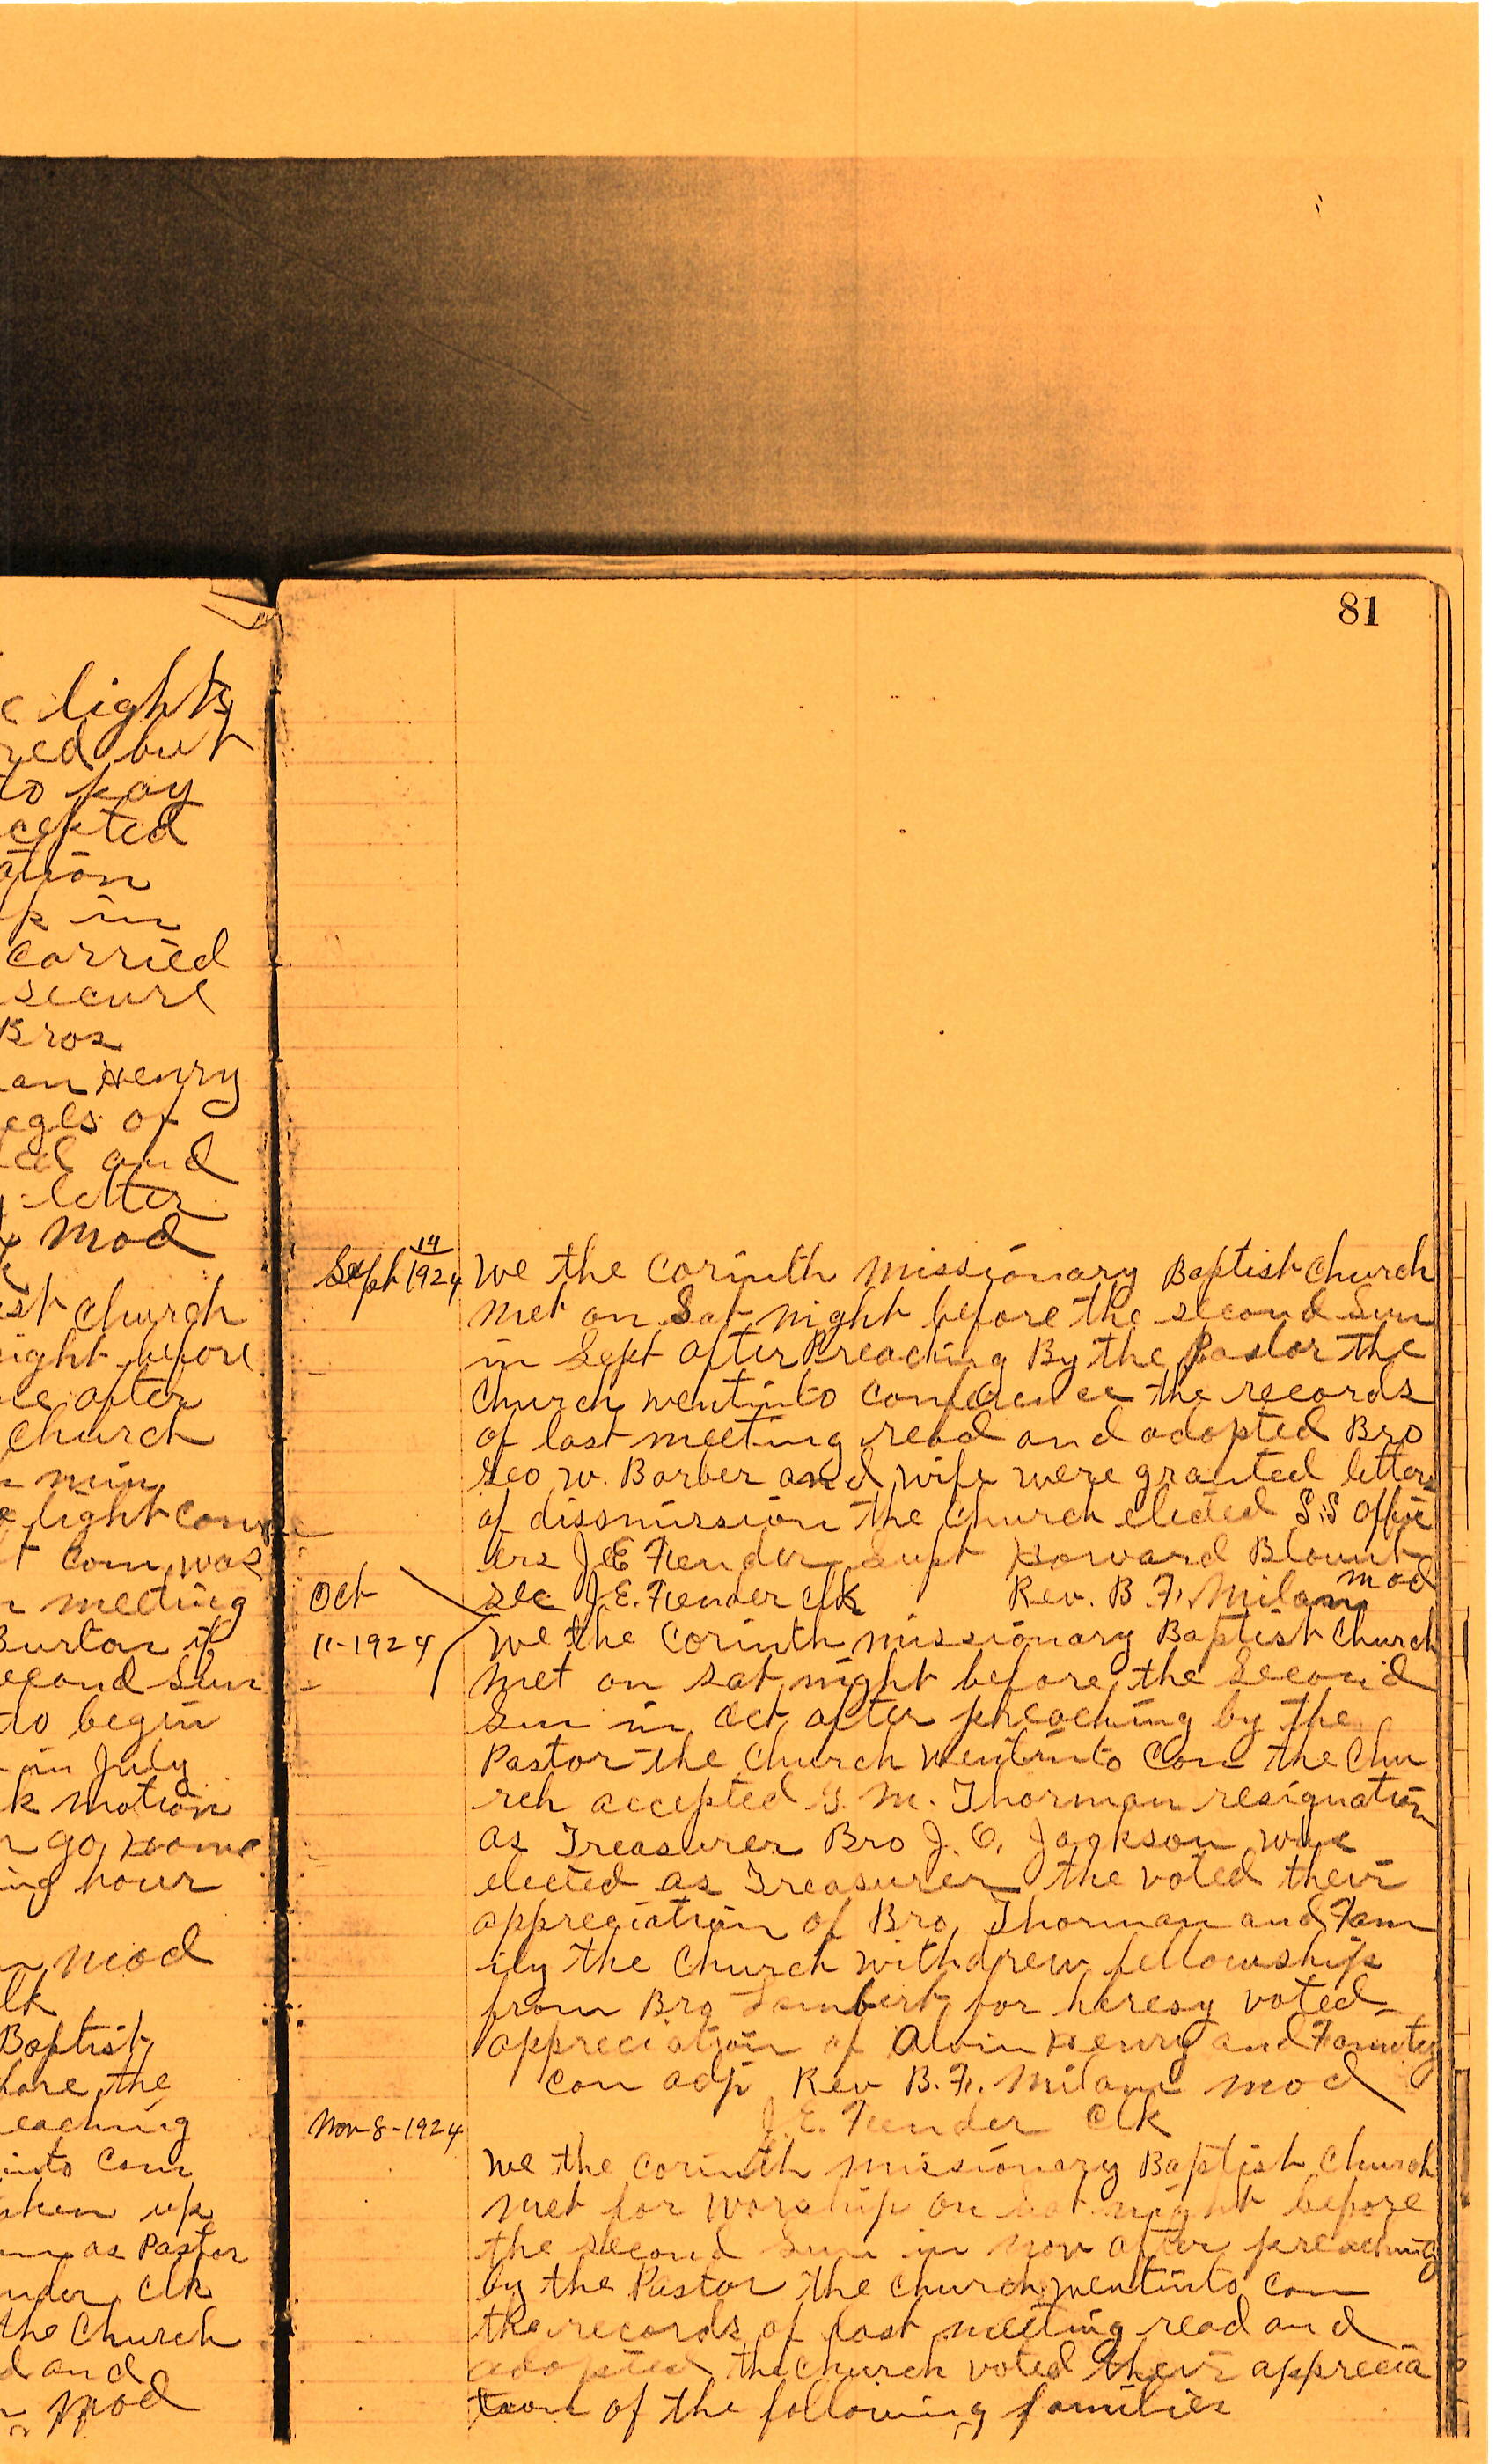 c lights
red but
to pay
cepted
ation
k in
carried
secure
Bros
an Henry
eges of
ed and
letter
Mod
st church
ight before
ce after
church
min
light Com
t com was
meeting
Burton if
econd Sun
to begin
in July
k motion
go Home
ing hour
Mod
lk
Baptist
fore the
eaching
into Com
aken up
as Pastor
nder Clk
the Church
d and
Mod
81
Sept 14 1924
We the Corinth Missionary Baptist Church
Met on Sat night before the second Sun
in Sept after Preaching By the Pastor the
Church went into conference the records
of last meeting read and adopted Bro
Geo W. Barber and wife were granted letters
of dissmission the Church elected S.S offic
ers J.E Fender Supt Howard Blount
Sec J.E. Fender Clk Rev. B. F. Milam Mod
Oct
11-1924
We the Corinth Missionary Baptist Church
Met on Sat night before the Second
Sun in Oct after preaching by the
Pastor the Church went into Con the Chu
rch accepted G. M. Thorman resignation
as Treasurer Bro J. O. Jackson was
elected as Treasurer the voted their
appreciation of Bro Thorman and Fam
ily the Church withdrew fellowship
from Bro Lambert for heresy voted
appreciation of Alvin Henry and Family
Con adj Rev B. F. Milam Mod
J. E. Fender Clk
Nov-8-1924
We the Corinth Missionary Baptist Church
Met for Worship on Sat night before
the Second Sun in Nov after preaching
by the Pastor the Church went into Con
the records of last meeting read and
adopted the Church voted their apprecia
tion of the following families